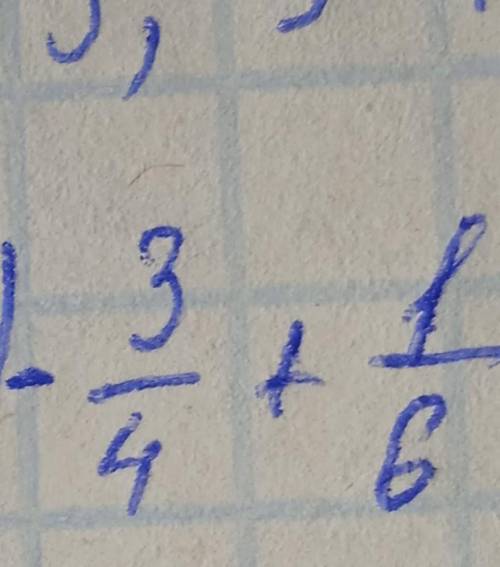 ) - 3/4 + 1/6